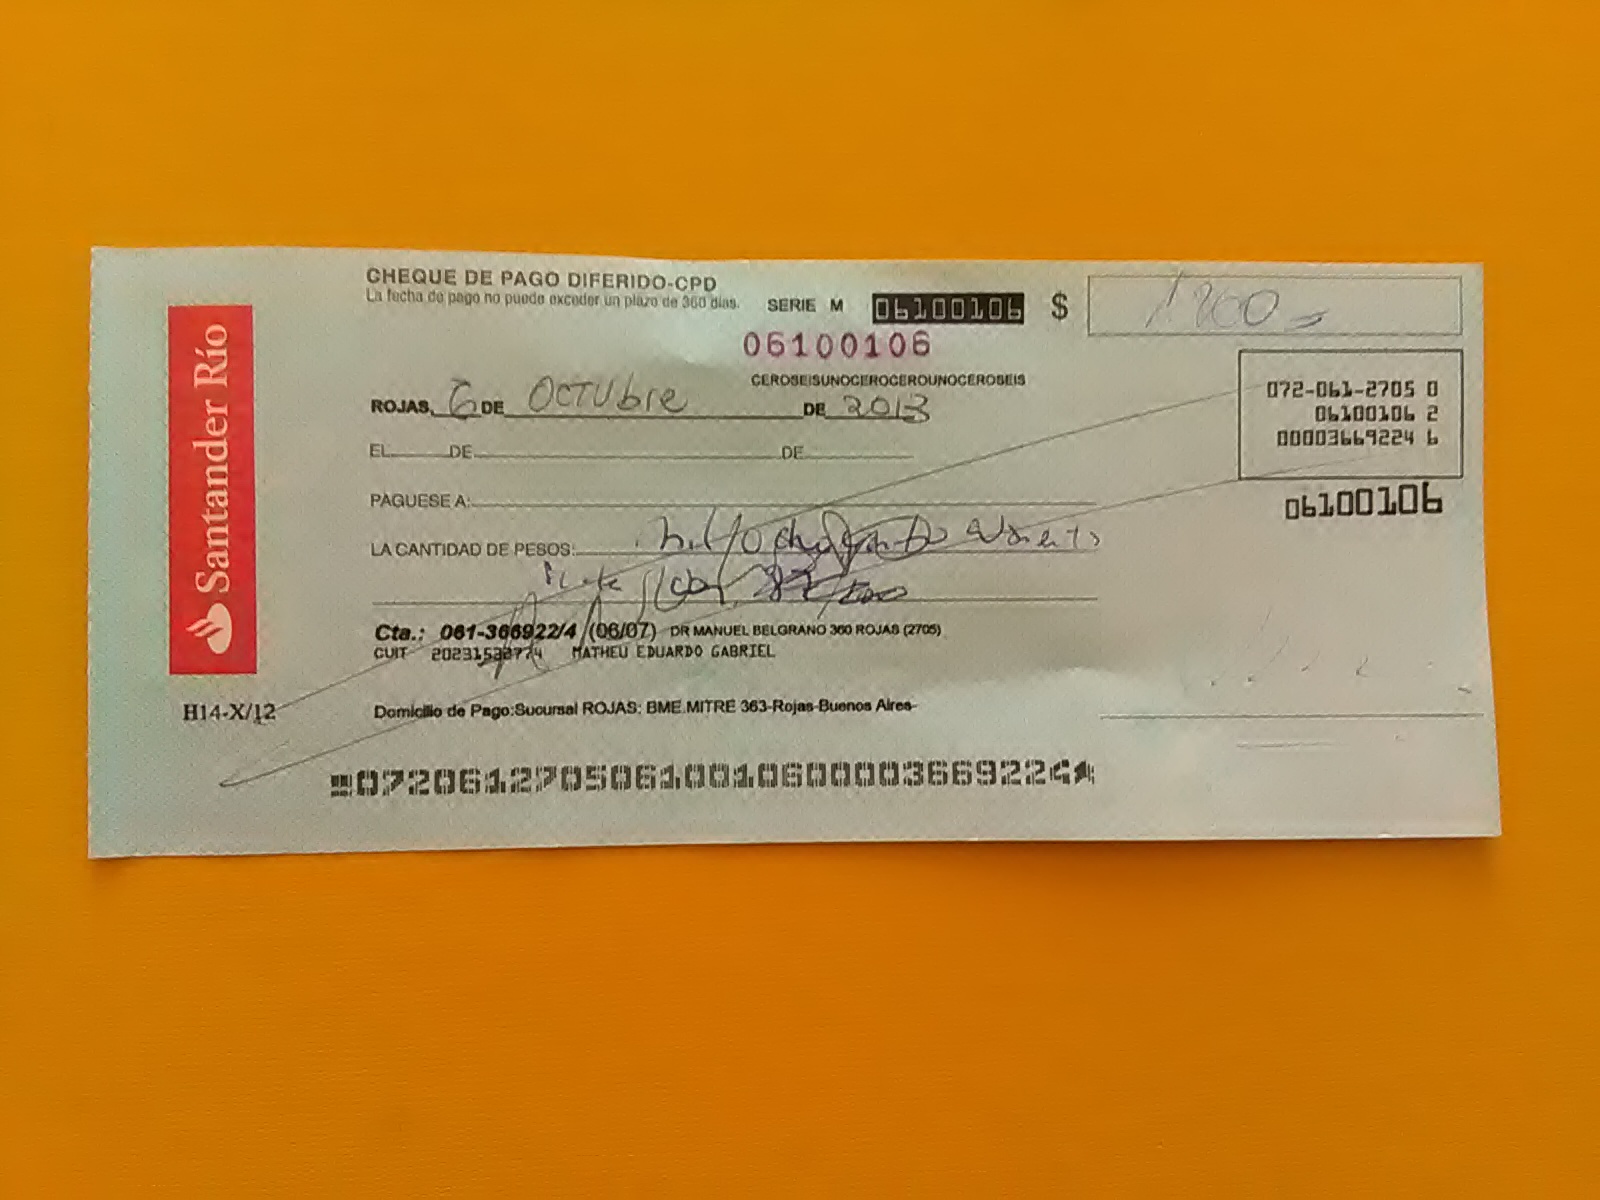 Santander Río
CHEQUE DE PAGO DIFERIDO-CPD
La fecha de pago no puede exceder un plazo de 360 días.
SERIE M 06100106 $
06100106
CEROSEISUNOCEROCEROUNOCEROSEIS
ROJAS, 6 DE OCTUbre DE 2013
EL DE DE
072-061-2705 0
06100106 2
00003669224 6
06100106
PAGUESE A:
LA CANTIDAD DE PESOS:
Cta.: 061-366922/4 (06/07) DR MANUEL BELGRANO 360 ROJAS (2705)
CUIT MATHEU EDUARDO GABRIEL
H14-X/12
Domicilio de Pago:Sucursal ROJAS: BME.MITRE 363-Rojas-Buenos Aires-
07206127050610010600003669224